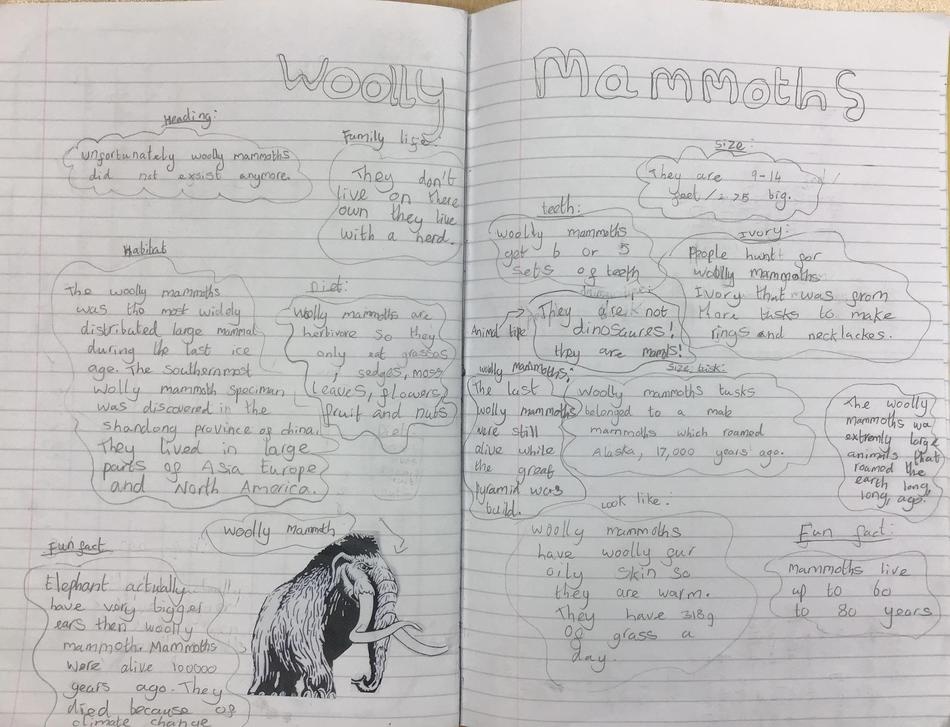 Woolly Mammoths
Heading:
unfortunately woolly mammoths
did not exsist anymore.
Family life:
They don't
live on there
own they live
with a herd.
Habitat
The woolly mammoths
was the most widly
distributed large mammal
during the last ice
age. The southernmost
Wolly mammoth speciman
was discovered in the
shandong province of china.
They lived in large
parts of Asia Europe
and North America.
Diet:
Woolly mammoths are
herbivore so they
only eat grasses
, sedges, moss
leaves, flowers,
fruit and nuts
woolly mammoth
Fun fact
Elephant actually
have very bigger
ears then woolly
mammoth. Mammoths
were alive 100000
years ago. They
died because of
climate change
size:
They are 9-14
feet / 275 big.
teeth:
woolly mammoths
get 6 or 5
sets of teeth
Ivory:
People hunt for
woolly mammoths
Ivory that was from
there tusks to make
rings and necklackes.
Animal life
They are not
dinosaures!
they are mamals!
woolly mammoths:
The last
wolly mammoths
were still
alive while
the great
pyramid was
build.
Size tusk:
Woolly mammoths tusks
belonged to a male
mammoths which roamed
Alaska, 17,000 years ago.
The woolly
mammoths wa
extremly large
animals that
roamed the
earth long,
long, ago.
Look like:
woolly mammoths
have woolly fur
oily skin so
they are warm.
They have 318g
of grass a
day.
Fun fact:
mammoths live
up to 60
to 80 years